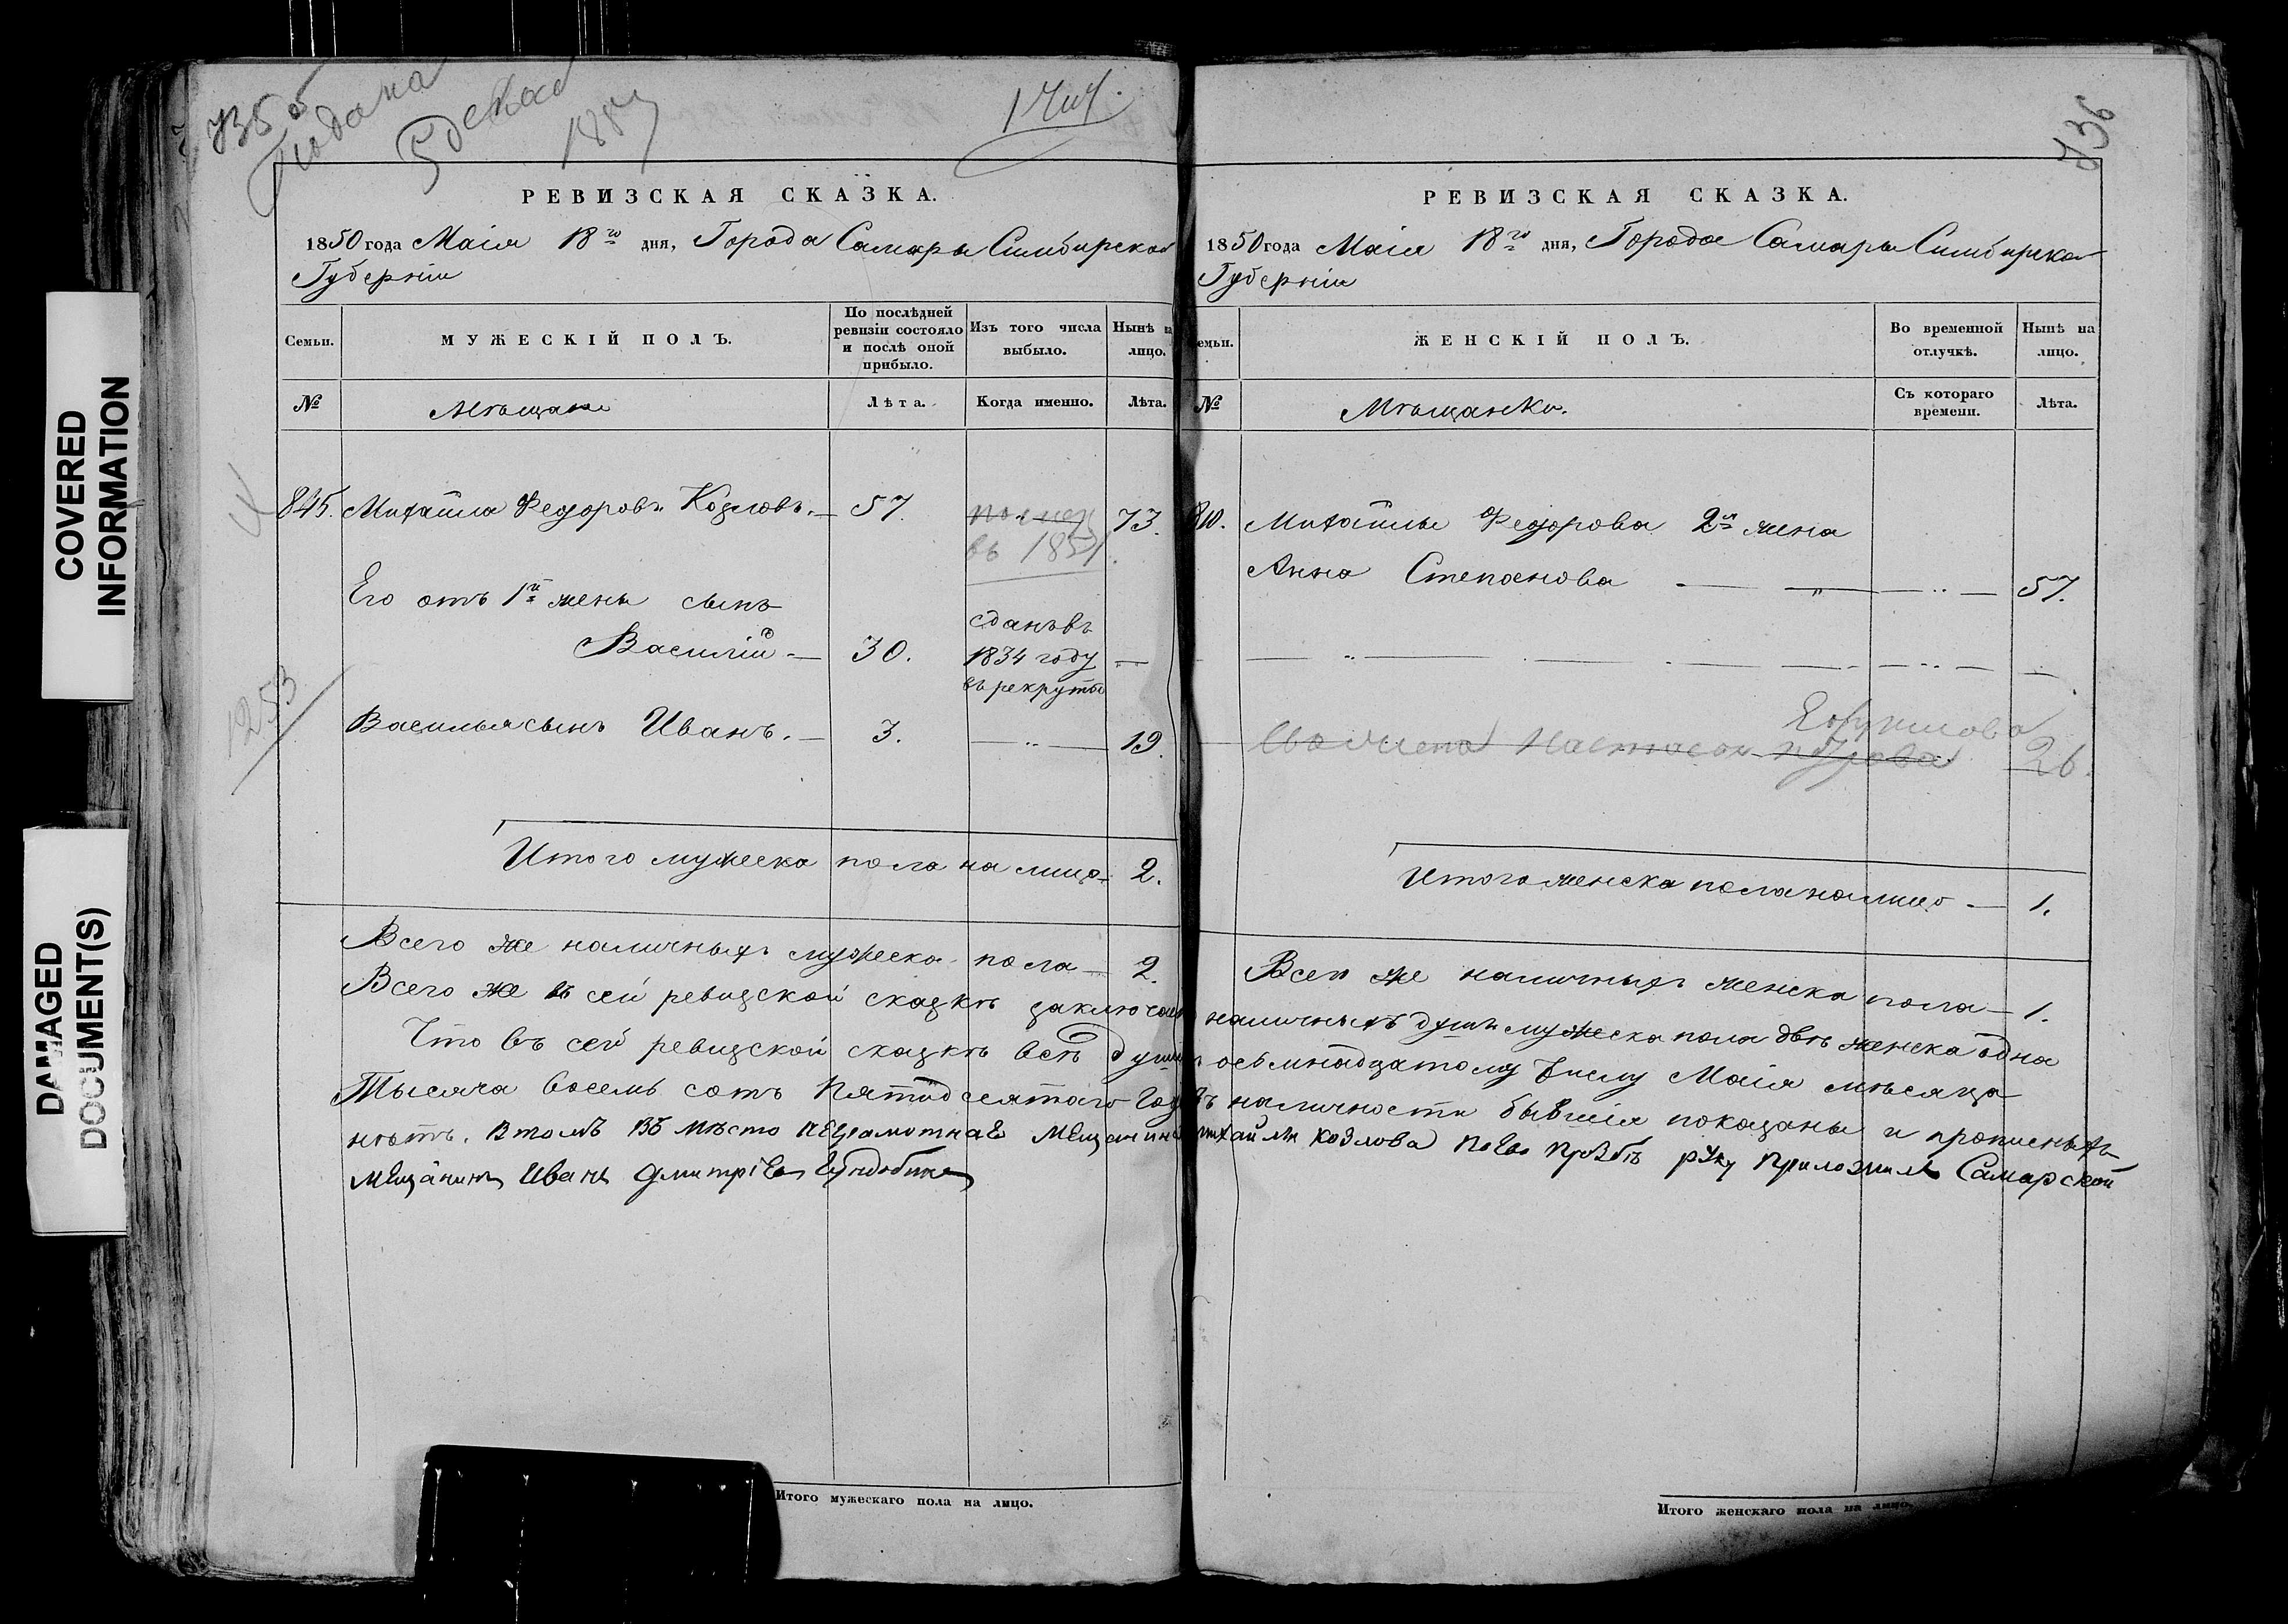 COVERED
INFORMATION
DAMAGED
DOCUMENT(S)
735
Подана
5 дека
1857
РЕВИЗСКАЯ СКАЗКА.
1850 года Маія 18го дня, Города Самары Симбирской
Губерніи
Семьи.
МУЖЕСКІЙ ПОЛЪ.
По послѣдней
ревизіи состояло
и послѣ оной
прибыло.
Изъ того числа
выбыло.
Нынѣ на
лицо.
№
Мѣщане
Лѣта.
Когда именно.
Лѣта.
845. Михайла Федоровъ Козловъ. 57. 73.
въ 1851
Его отъ 1й жены сынъ
Василій 30.
сданъ въ
1834 году
въ рекруты
1253
Василья сынъ Иванъ. 3. 19.
Итого мужеска пола на лицо 2.
Всего же наличныхъ мужеска пола 2.
Итого мужескаго пола на лицо.
736
РЕВИЗСКАЯ СКАЗКА.
1850 года Маія 18го дня, Города Самары Симбирской
Губерніи
емьи.
ЖЕНСКІЙ ПОЛЪ.
Во временной
отлучкѣ.
Нынѣ на
лицо.
№
Мѣщанки.
Съ котораго
времени.
Лѣта.
Михайлы Федорова 2я жена
Анна Степанова 57.
жена Настасья 26.
Итого женска пола на лицо 1.
Всего же наличныхъ женска пола 1.
Всего же въ сей ревизской сказкѣ заключается наличныхъ душъ мужеска пола двѣ женска одна
Что въ сей ревизской сказкѣ всѣ души осьмнадцатому числу Маія мѣсяца
Тысяча восемь сотъ пятидесятаго года въ наличности бывшія показаны и прописныхъ
нѣтъ. Втомъ въ мѣсто неграмотнаго мещанина михайлы козлова поего прозбѣ руку приложилъ Самарской
мещанинъ Иванъ Дмитріевъ
Итого женскаго пола на лицо.